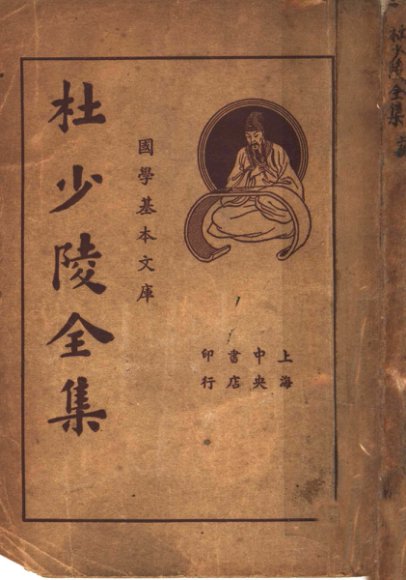 杜少陵全集
國學基本文庫
上海
中央
書店
印行
杜少陵全集